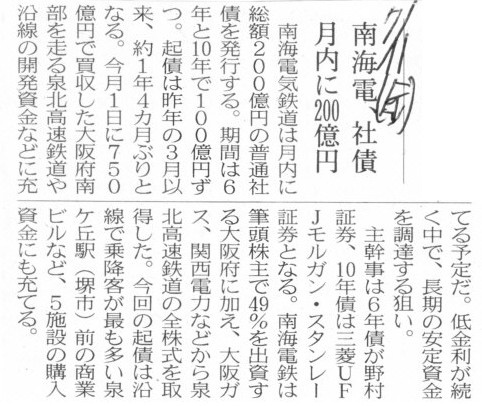 7/11(金)
南海電 社債
月内に200億円
南海電気鉄道は月内に
総額200億円の普通社
債を発行する。期間は6
年と10年で100億円ず
つ。起債は昨年の3月以
来、約1年4カ月ぶりと
なる。今月1日に750
億円で買収した大阪府南
部を走る泉北高速鉄道や
沿線の開発資金などに充
てる予定だ。低金利が続
く中で、長期の安定資金
を調達する狙い。
主幹事は6年債が野村
証券、10年債は三菱UF
Jモルガン・スタンレー
証券となる。南海電鉄は
筆頭株主で49%を出資す
る大阪府に加え、大阪ガ
ス、関西電力などから泉
北高速鉄道の全株式を取
得した。今回の起債は沿
線で乗降客が最も多い泉
ケ丘駅(堺市)前の商業
ビルなど、5施設の購入
資金にも充てる。